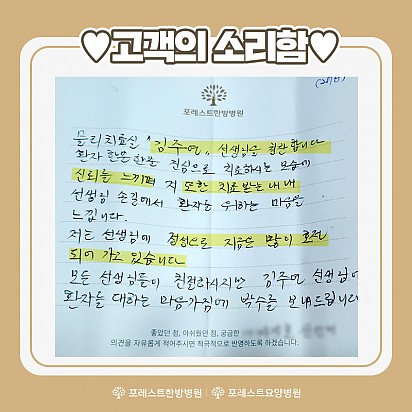 ♥고객의 소리함♥
포레스트한방병원
물리치료실 "김주연" 선생님을 칭찬합니다
환자 한분 한분 진심으로 치료하시는 모습에
신뢰를 느끼며 저 또한 치료받는 내내
선생님 손길에서 환자를 위하는 마음을
느낍니다.
저는 선생님에 정성으로 지금은 많이 호전
되어 가고 있습니다
모든 선생님들이 친절하시지만 김주연 선생님에
환자를 대하는 마음가짐에 박수를 보내드립니다
좋았던 점, 아쉬웠던 점, 궁금한
의견을 자유롭게 적어주시면 적극적으로 반영하도록 하겠습니다.
포레스트한방병원 | 포레스트요양병원